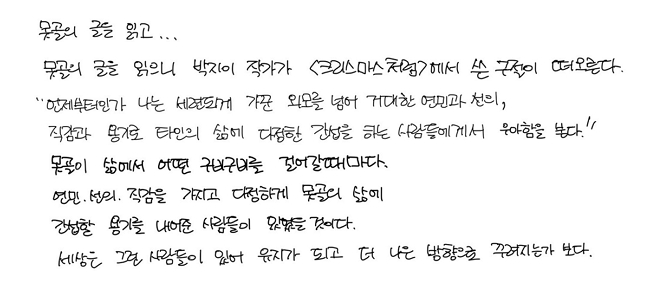 못골의 글을 읽고...
못골의 글을 읽으니 박지이 작가가 <크리스마스처럼>에서 쓴 구절이 떠오른다.
"언제부터인가 나는 세련되게 가꾼 외모를 넘어 거대한 연민과 선의,
직감과 용기로 타인의 삶에 다정한 간섭을 하는 사람들에게서 우아함을 본다."
못골이 삶에서 어떤 구비구비를 걸어갈때마다.
연민.선의.직감을 가지고 다정하게 못골의 삶에
간섭할 용기를 내어준 사람들이 있었을 것이다.
세상은 그런 사람들이 있어 유지가 되고 더 나은 방향으로 꾸려지는가 보다.